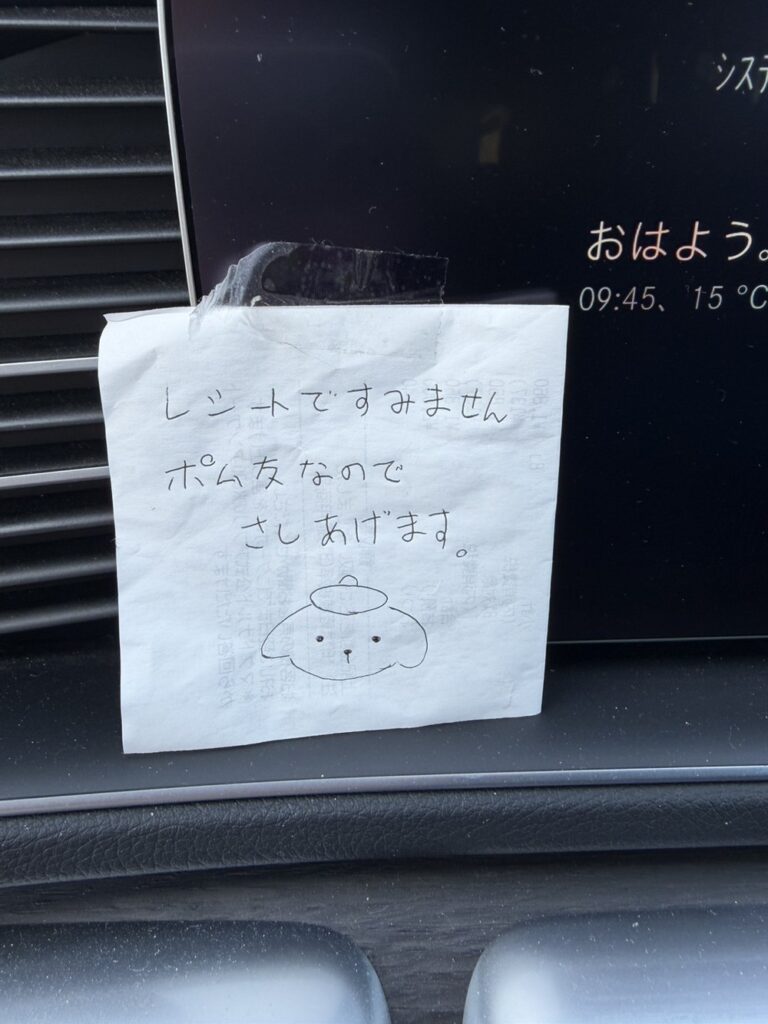 システ
おはよう。
09:45、 15 °C
レシートですみません
ポム友なので
さしあげます。